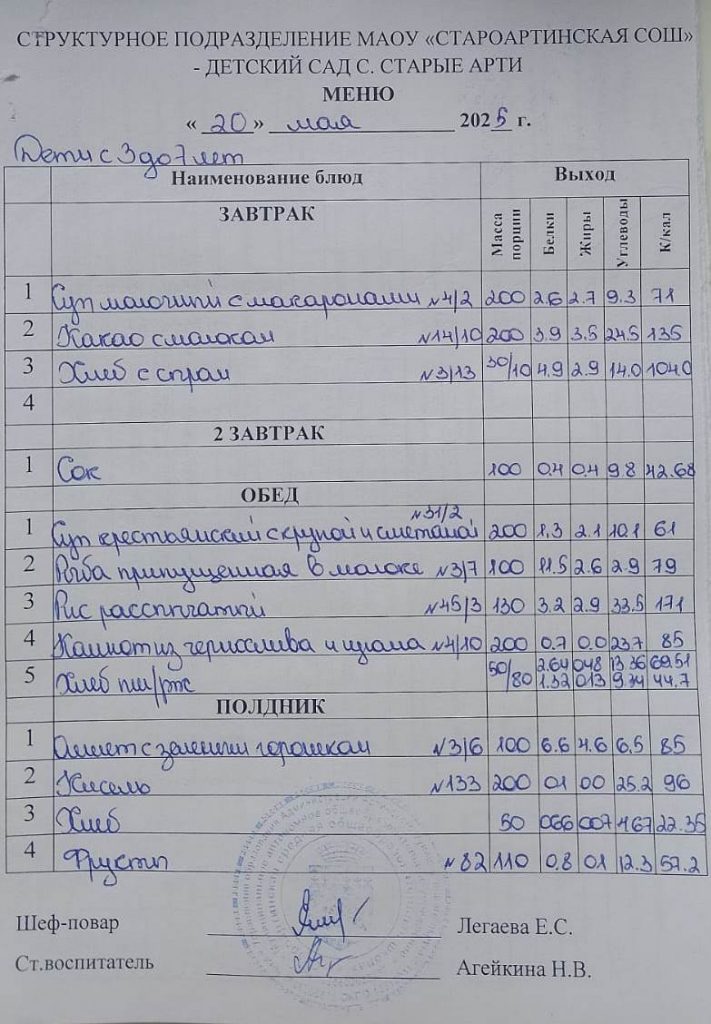 СТРУКТУРНОЕ ПОДРАЗДЕЛЕНИЕ МАОУ «СТАРОАРТИНСКАЯ СОШ»
- ДЕТСКИЙ САД С. СТАРЫЕ АРТИ
МЕНЮ
« 20 » мая 2025 г.
Дети с 3 до 7 лет
Наименование блюд Выход
ЗАВТРАК Масса порции Белки Жиры Углеводы К/кал
1 Суп молочный с макаронами №4/2 200 2.6 2.7 9.3 71
2 Какао с молоком №14/10 200 3.9 3.5 24.5 135
3 Хлеб с сыром №3/13 30/10 4.9 2.9 14.0 104.0
4
2 ЗАВТРАК
1 Сок 100 0.4 0.4 9.8 42.68
ОБЕД
№31/2
1 Суп крестьянский с крупой и сметаной 200 1.3 2.1 10.1 61
2 Рыба припущенная в молоке №3/7 100 11.5 2.6 2.9 79
3 Рис рассыпчатый №45/3 130 3.2 2.9 33.5 171
4 Компот из чернослива и изюма №4/10 200 0.7 0.0 23.7 85
5 Хлеб пш/рж 50/80 2.64 0.48 13.36 69.51
1.32 0.13 9.34 44.7
ПОЛДНИК
1 Омлет с зеленым горошком №3/6 100 6.6 4.6 6.5 85
2 Кисель №133 200 0.1 0.0 25.2 96
3 Хлеб 50 0.66 0.07 4.67 22.35
4 Фрукты №82 110 0.8 0.1 12.3 57.2
Шеф-повар Легаева Е.С.
Ст.воспитатель Агейкина Н.В.